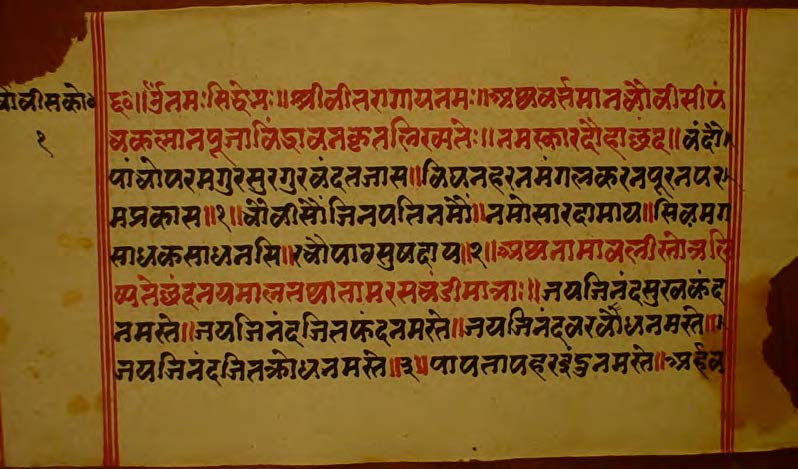 १
॥ॐनमःसिद्धेभ्यः॥श्रीवीतरागायनमः॥अथवर्त्तमानचौवीसीपं
चकल्यानपूजाविंद्रावनकृतलिख्यतेः॥नमस्कारदोहाछंद॥वंदौ
पांचोपरमगुरसुरगुरवंदतजास॥विघनहरनमंगलकरनपूरनपर
मप्रकास॥१॥चौवीसौंजिनपतिनमौं॥नमोसारदामाय॥सिवमग
साधकसाधनमि॥रचौपाठसुषदाय॥२॥अथनामावलीस्तोत्रलि
ष्यतेछंदनयमालनतथातामरसचंडीमात्राः॥जयजिनंदसुखकंद
नमस्ते॥जयजिनंदजितफंदनमस्ते॥जयजिनंदवरवोधनमस्ते॥
जयजिनंदजितक्रोधनमस्ते॥३॥पापतापहरइंदुनमस्ते॥अर्हव